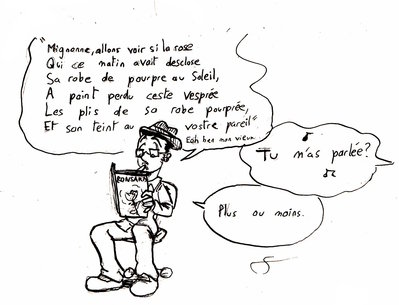 "Mignonne, allons voir si la rose
Qui ce matin avoit desclose
Sa robe de pourpre au Soleil,
A point perdu ceste vesprée
Les plis de sa robe pourprée,
Et son teint au vostre pareil"
Eeh ben mon vieux
RONSARD
Tu m'as parlée?
Plus ou moins.